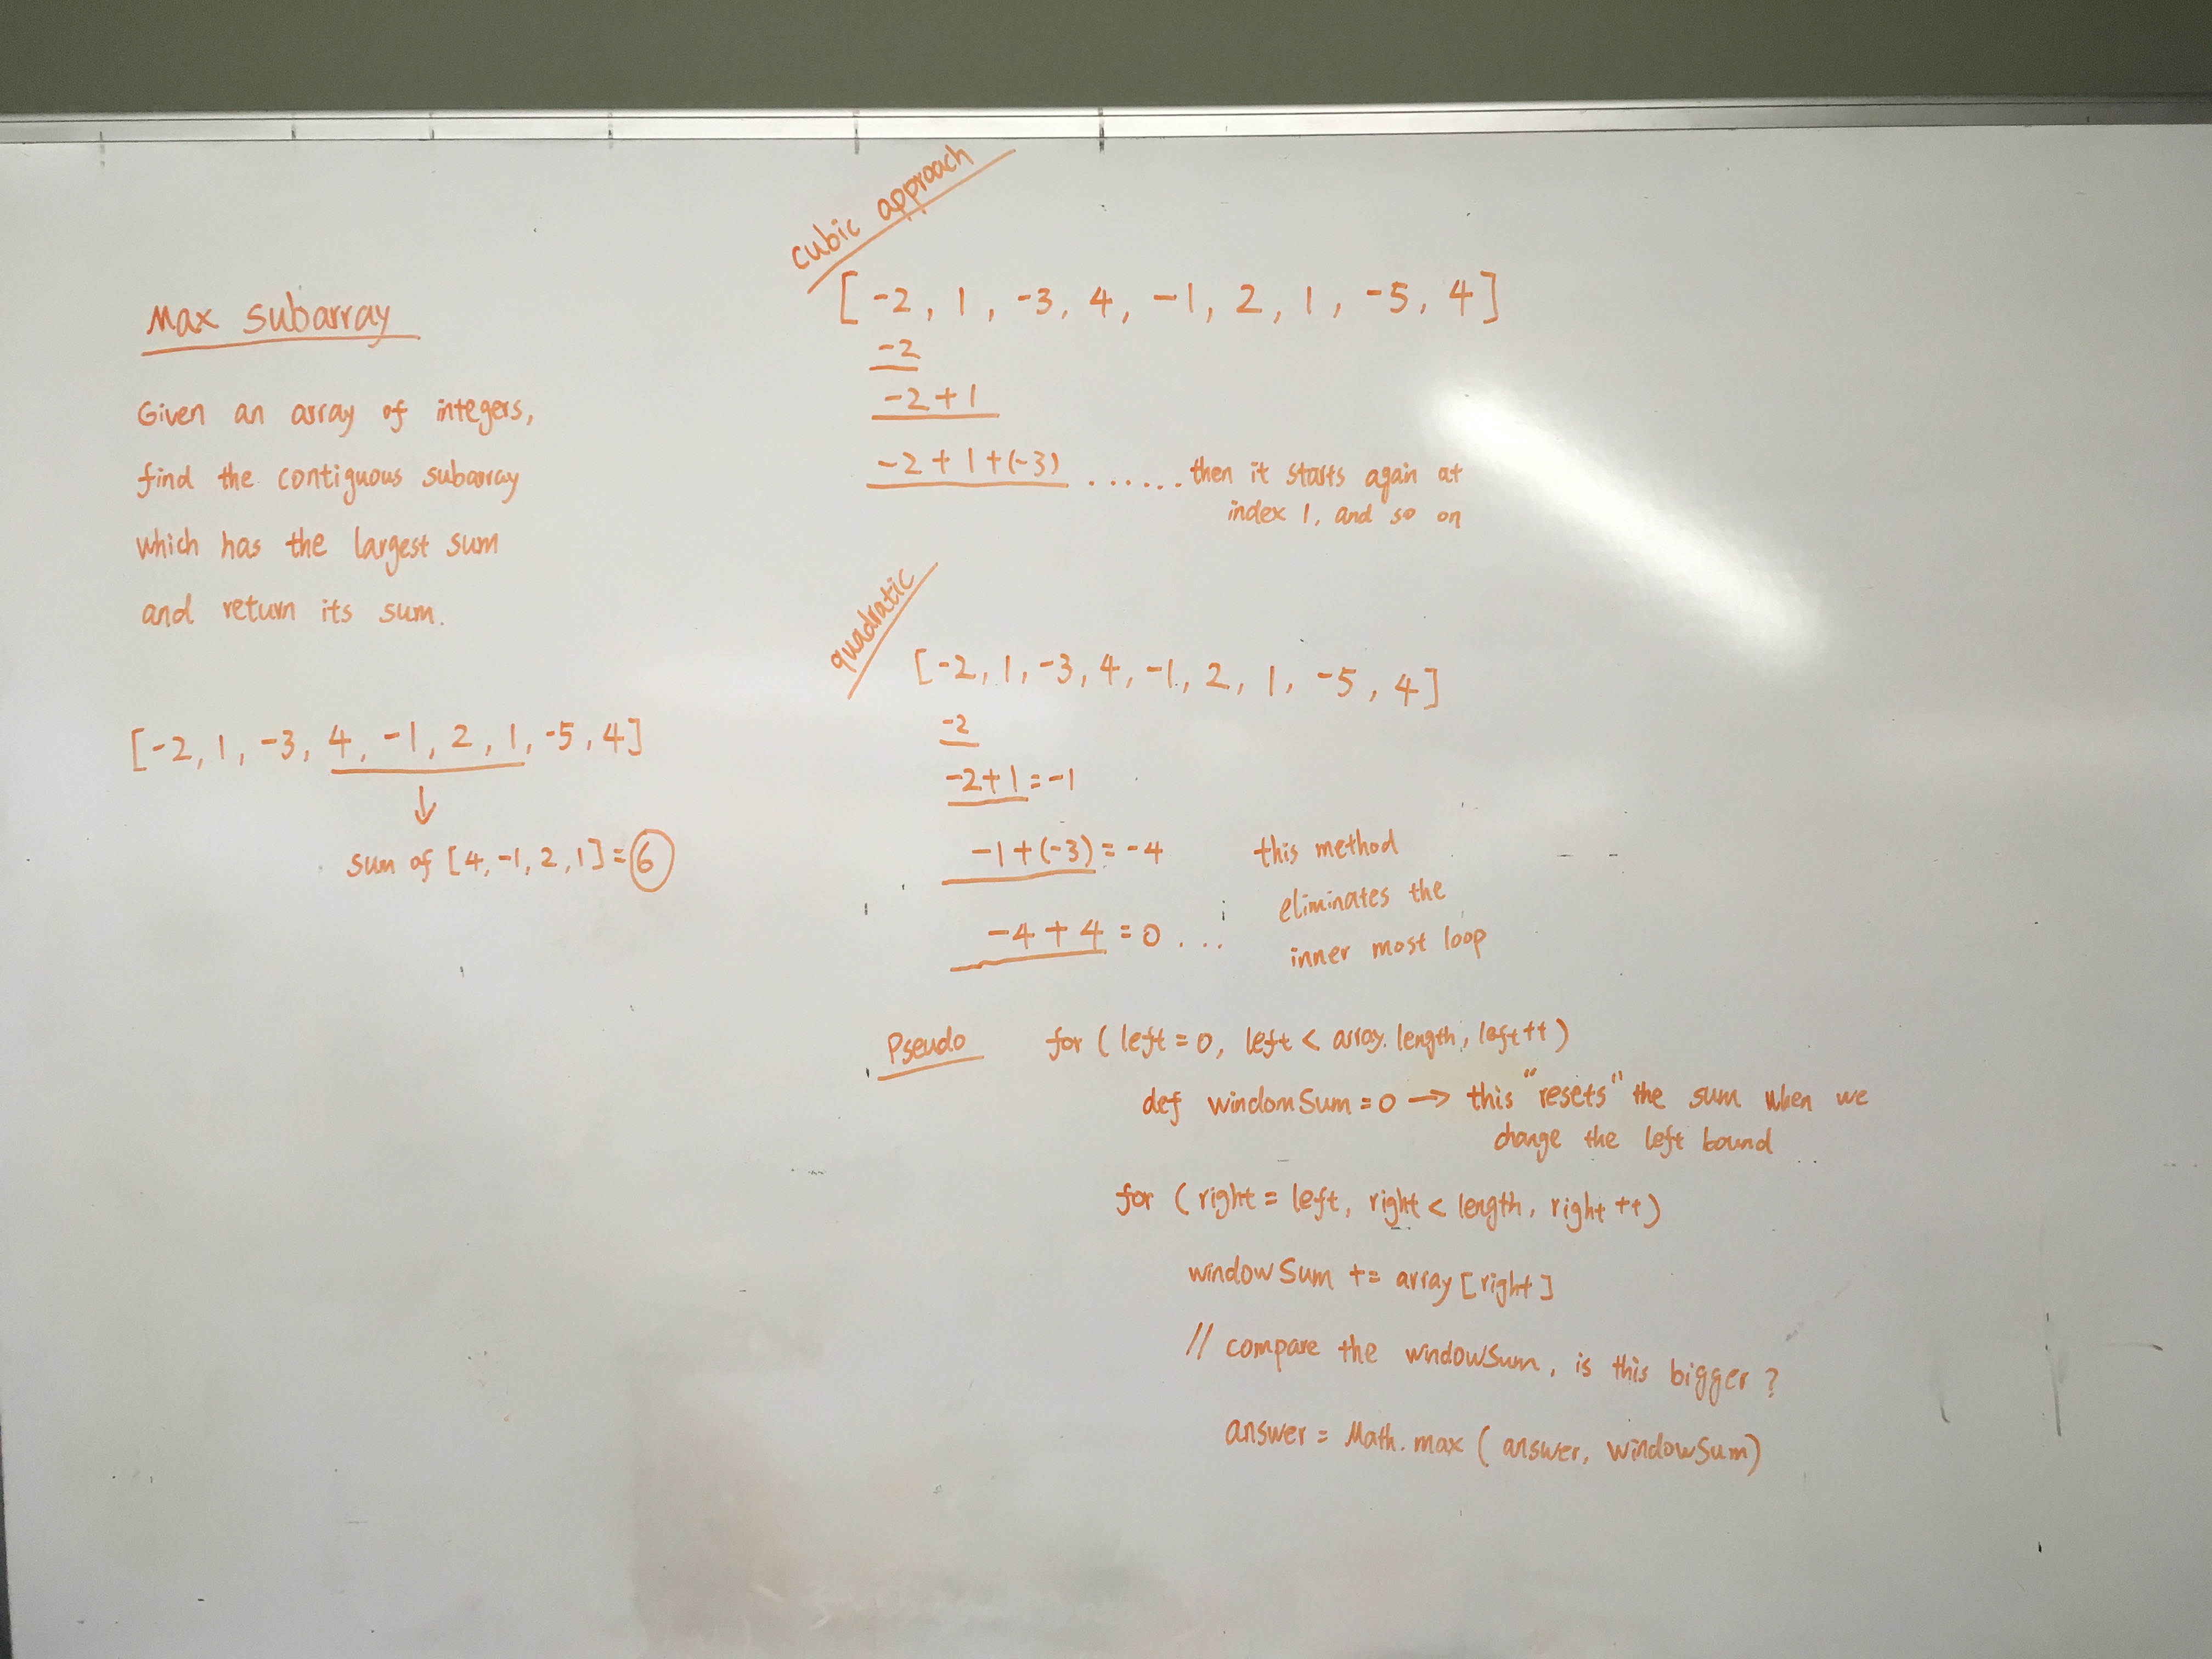 Max subarray
Given an array of integers,
find the contiguous subarray
which has the largest sum
and return its sum.
[-2, 1, -3, 4, -1, 2, 1, -5, 4]
↓
sum of [4, -1, 2, 1] = 6
cubic approach
[-2, 1, -3, 4, -1, 2, 1, -5, 4]
-2
-2+1
-2+1+(-3) ...... then it starts again at
index 1, and so on
quadratic
[-2, 1, -3, 4, -1, 2, 1, -5, 4]
-2
-2+1=-1
-1+(-3)=-4
-4+4=0 ...
this method
eliminates the
inner most loop
Pseudo for (left=0, left < array.length, left++)
def windomSum=0 → this "resets" the sum when we
change the left bound
for (right=left, right < length, right++)
windowSum += array[right]
// compare the windowSum, is this bigger?
answer = Math.max(answer, windowSum)